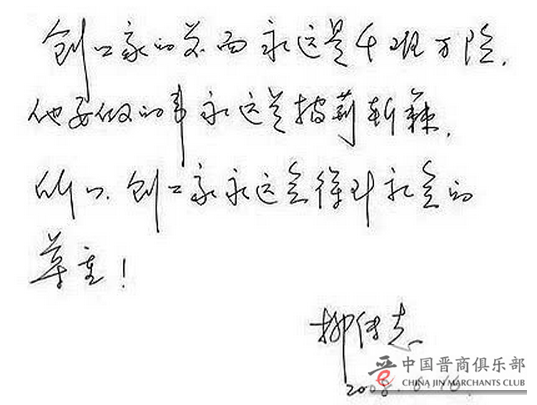 创业家的前面永远是千难万险，
他要做的事永远是披荆斩棘，
所以，创业家永远会得到社会的
尊重！
柳传志
中国晋商俱乐部
CHINA JIN MERCHANTS CLUB
2008.